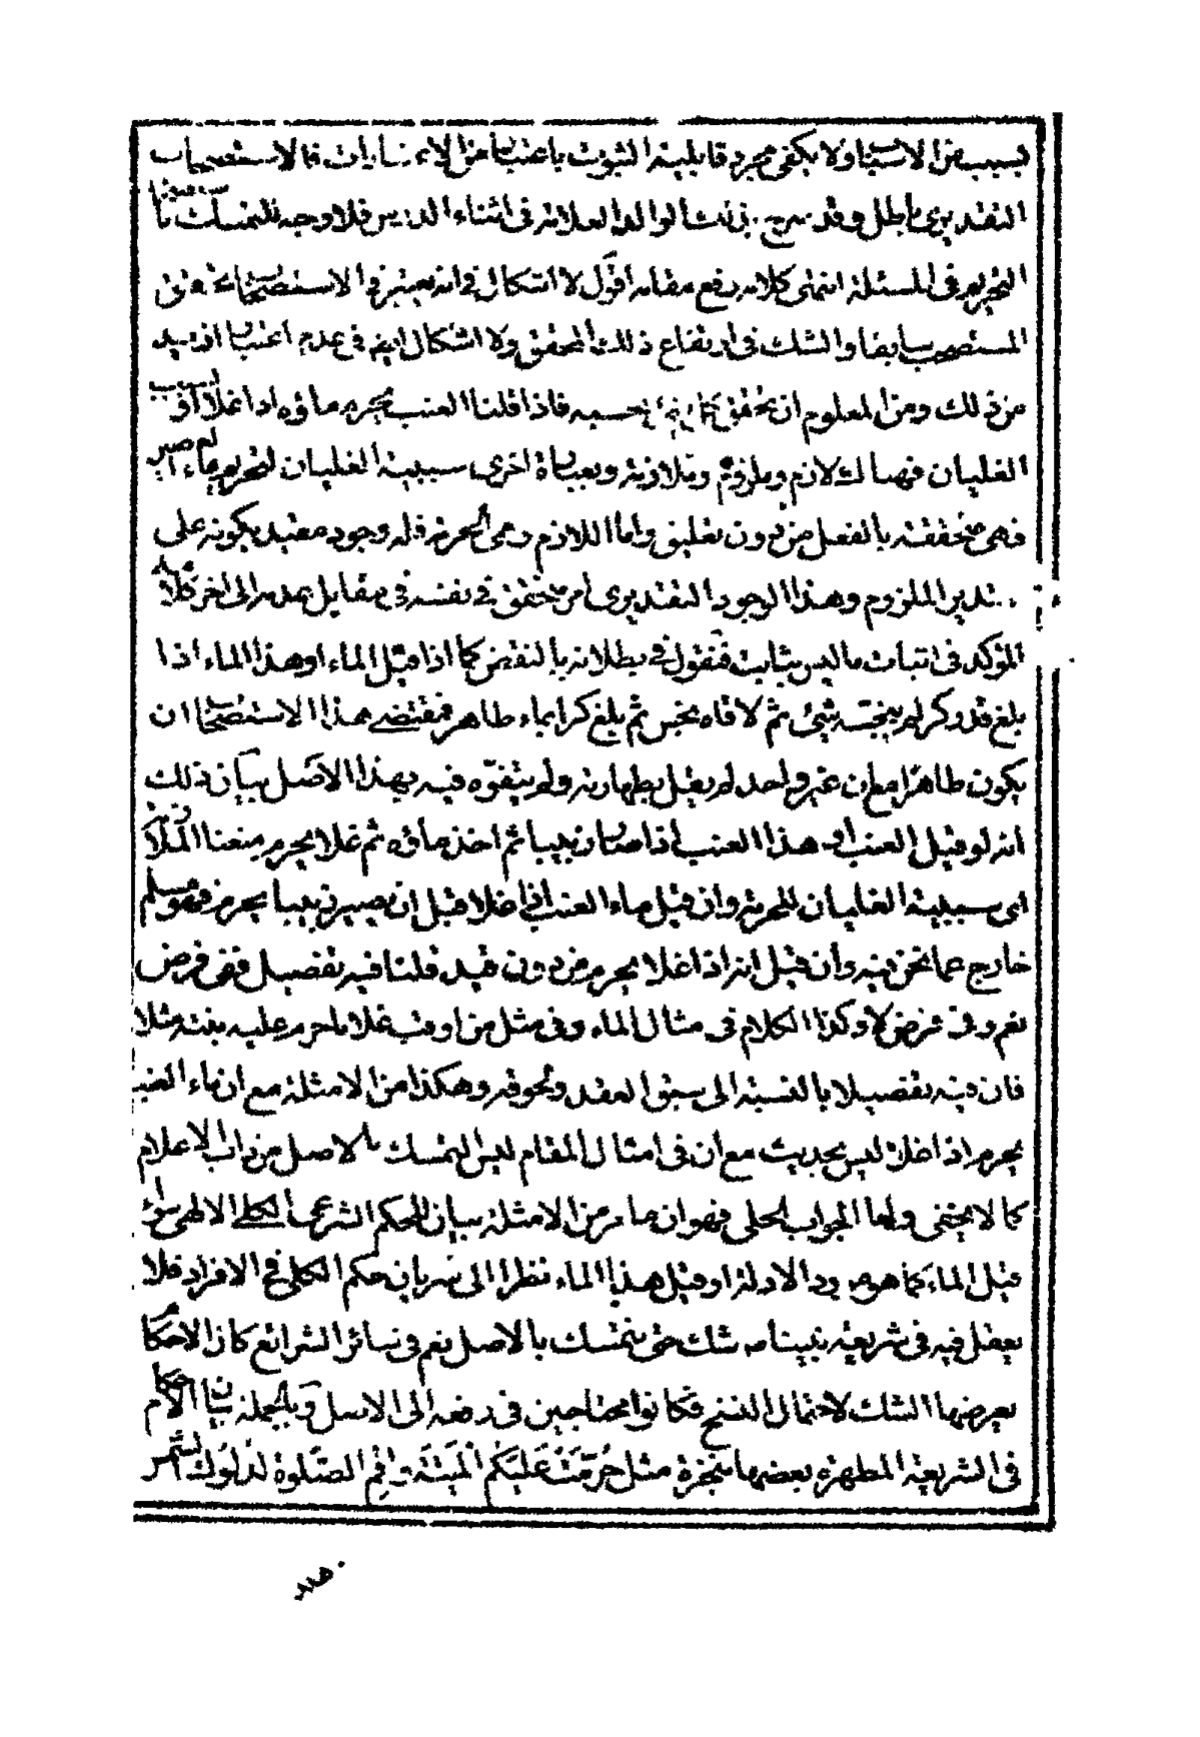 بسبب من الاسباب ولا يكفى مجرد قابلية الثبوت باعتبار من الاعتبارات فالاستصحاب
التقديرى باطل وقد صرح بذلك الوالد العلامة فى اثناء الدرس فلا وجه للتمسك
التحريم فى المسئلة انتهى كلامه رفع مقامه اقول لا اشكال فى انه يعتبر فى الاستصحاب تحقق
المستصحب سابقا والشك فى ارتفاع ذلك المحقق ولا اشكال ايضا فى عدم اعتبار ازيد
من ذلك ومن المعلوم ان تحقق كل شئ بحسبه فاذا قلنا العنب يحرم ماؤه اذا غلا او بسبب
الغليان فهناك لازم وملزوم وملازمة وبعبارة اخرى سببية الغليان لتحريم ماء العصير
فهى متحققة بالفعل من دون تعليق واما اللازم وهى الحرمة فله وجود مقيد بكونه على
تقدير الملزوم وهذا الوجود التقديرى امر متحقق فى نفسه فى مقابل عدمه الى اخر كلامه
المؤكد فى اثبات ما ليس بثابت فنقول فى بطلانه بالنقض كما اذا قيل الماء او هذا الماء اذا
بلغ قدر كر لم ينجسه شئ ثم لاقاه نجس ثم بلغ كرا بماء طاهر فمقتضى هذا الاستصحاب ان
يكون طاهرا مع ان غير واحد لم يقل بطهارته ولم يتفوه فيه بهذا الاصل بيان ذلك
انه لو قيل العنب او هذا العنب اذا صار زبيبا ثم اخذ ماؤه ثم غلا يحرم منعنا الملازمة
اى سببية الغليان للحرمة وان قيل ماء العنب اذا غلا قبل ان يصير زبيبا يحرم فهو مسلم
خارج عما نحن فيه وان قيل انه اذا غلا يحرم من دون قيد قلنا فيه تفصيل ففى فرض
نعم وفى فرض لا وكذا الكلام فى مثال الماء وفى مثل من اوقب غلاما حرم عليه بنته مثلا
فان فيه تفصيلا بالنسبة الى سبق العقد ولحوقه وهكذا من الامثلة مع ان ماء العنب
يحرم اذا غلا ليس بحديث مع ان فى امثال المقام ليس التمسك بالاصل من داب الاعلام
كما لا يخفى واما الجواب الحلى فهو ان ما مر من الامثلة بيان للحكم الشرعى الكلى الالهى سواء
قيل الماء كما هو مورد الادلة او قيل هذا الماء نظرا الى سريان حكم الكلى فى الافراد فلا
يعقل فيه فى شريعة نبينا ص شك حتى يتمسك بالاصل نعم فى سائر الشرائع كان الاحكام
يعرضها الشك لاحتمال النسخ فكانوا محتاجين فى رفعه الى الاصل وبالجملة بيان الاحكام
فى الشريعة المطهرة بعضها منجزة مثل حُرِّمَتْ عَلَيْكُم الْمَيْتَةُ واقِمِ الصَّلوةَ لِدُلُوكِ الشمس